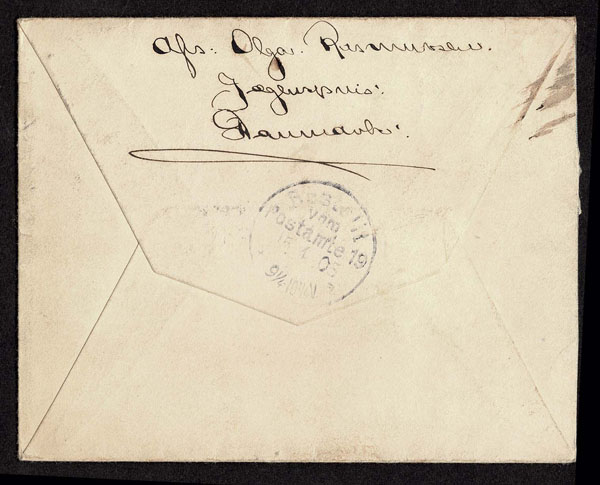 Afs: Olga Rasmussen.
Jægerspris.
Danmark.
BERLIN
vom
Postamte 19
9¼